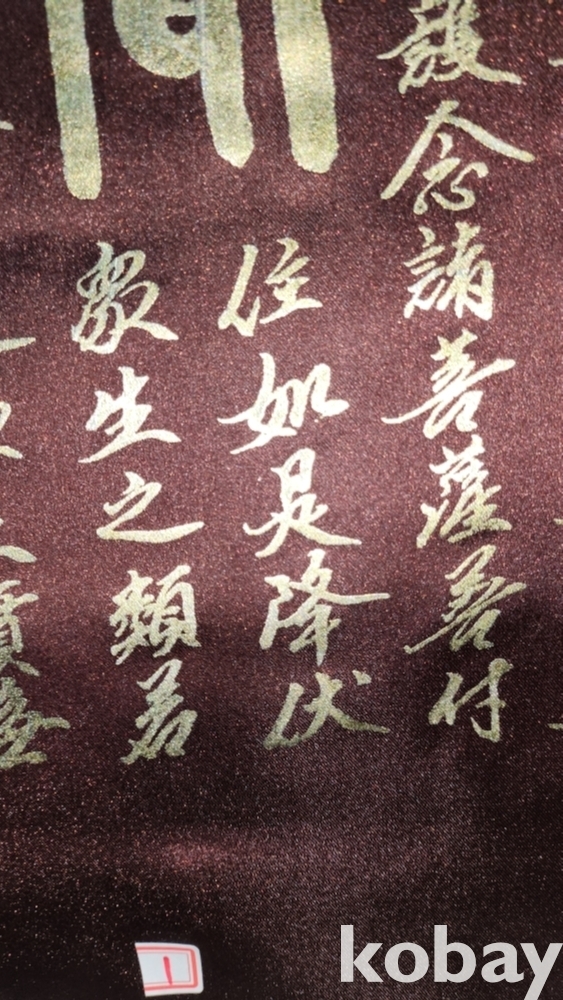 護念諸菩薩善付
住如是降伏
衆生之類若
實無
kobay